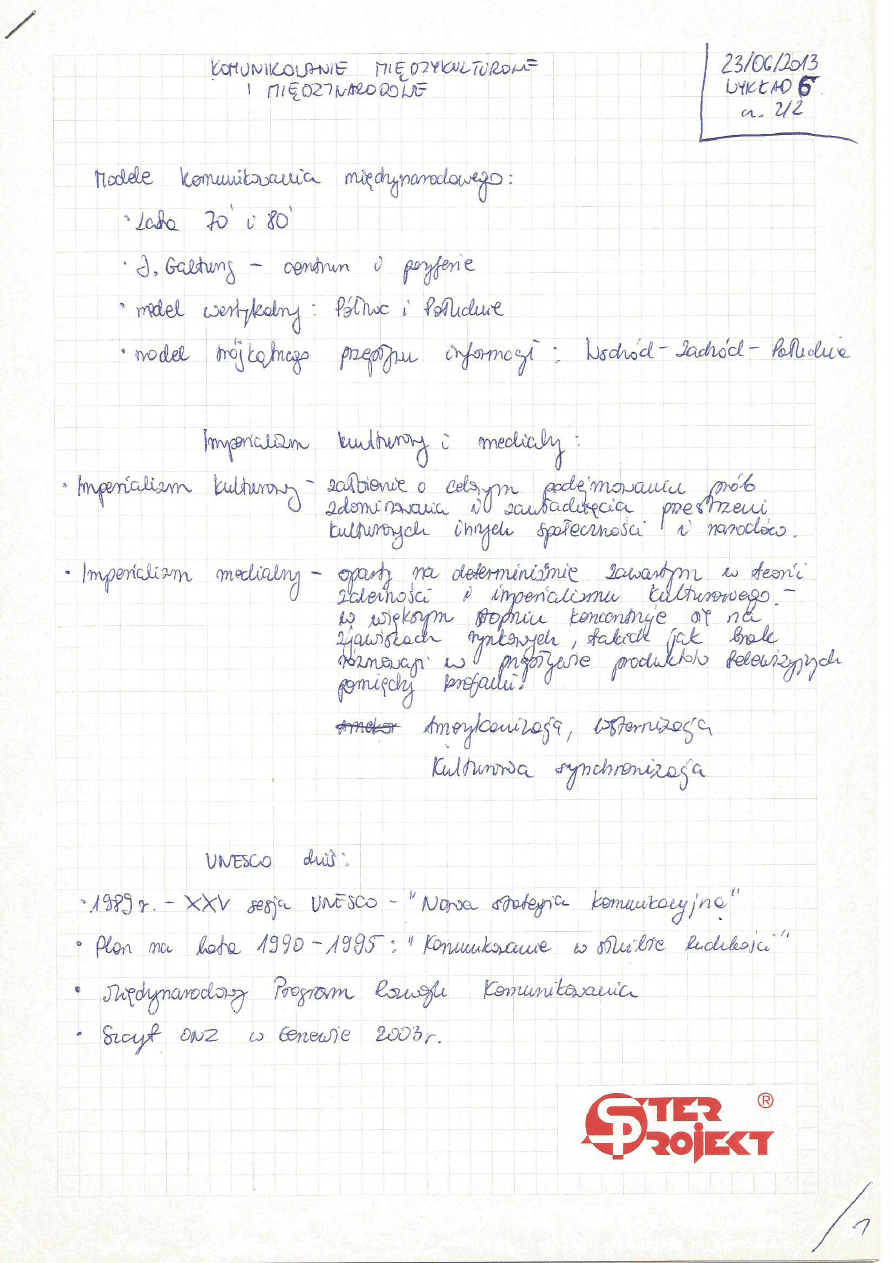 KOMUNIKOWANIE MIĘDZYKULTUROWE
I MIĘDZYNARODOWE
23/06/2013
WYKŁAD 5
cz. 2/2
Modele komunikowania międzynarodowego:
• Lata 70' i 80'
• J. Galtung – centrum i peryferie
• model wertykalny: Północ i Południe
• model trójkątnego przepływu informacji: Wschód – Zachód – Południe
Imperializm kulturowy i medialny:
• Imperializm kulturowy – założenie o celowym podejmowaniu prób
zdominowania i zawładnięcia przestrzeni
kulturowych innych społeczności i narodów.
• Imperializm medialny – oparty na determiniźmie zawartym w teorii
zależności i imperializmu kulturowego –
w większym stopniu koncentruje się na
zjawiskach rynkowych, takich jak brak
równowagi w przepływie produktów telewizyjnych
pomiędzy krajami.
Amerykanizacja, westernizacja
Kulturowa synchronizacja
UNESCO dziś:
• 1989 r. – XXV sesja UNESCO – "Nowa strategia komunikacyjna"
• Plan na lata 1990 – 1995: "Komunikowanie w służbie ludzkości"
• Międzynarodowy Program Rozwoju Komunikowania
• Szczyt ONZ w Genewie 2003 r.
STER ®
PROJEKT
1